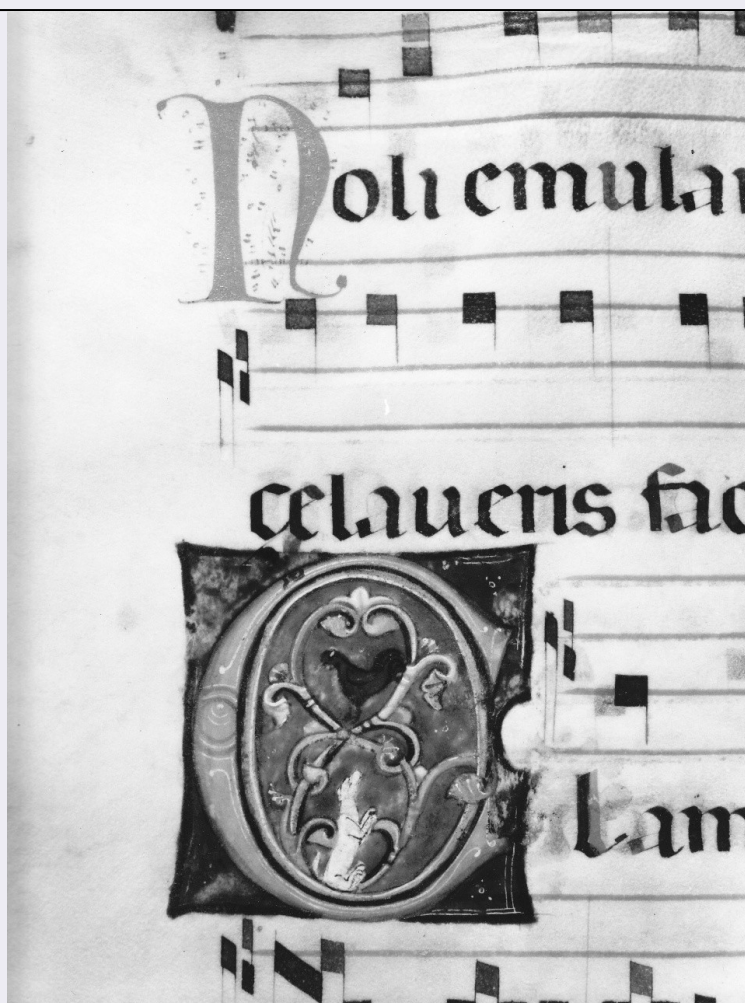 Noli emular
celaueris fac
Clam